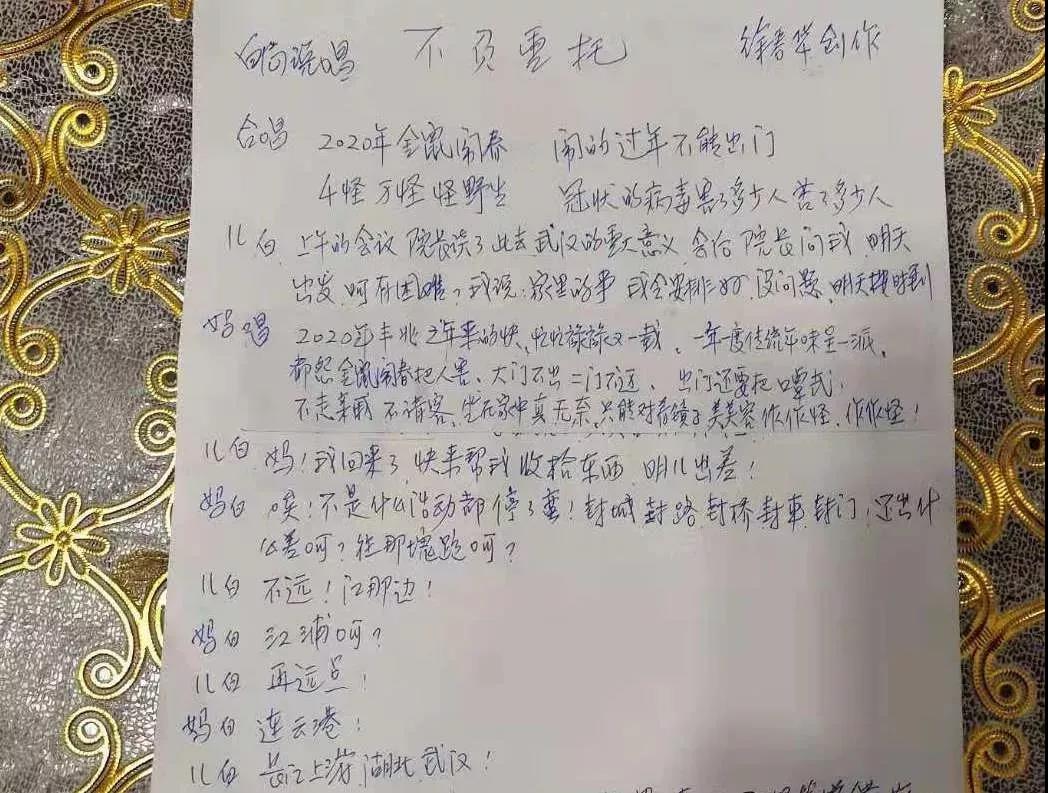 白局说唱 不负重托 徐春华创作
合唱 2020年金鼠闹春 闹的过年不能出门
千怪万怪怪野生 冠状的病毒害了多少人害了多少人
儿白 上午的会议院长谈了此去武汉的重大意义 会后院长问我明天
出发呵有困难?我说:家里的事我会安排好,没问题,明天按时到
妈唱 2020年丰兆之年来的快,忙忙禄禄又一载,一年一度传统年味呈一派,
都怨金鼠闹春把人害、大门不出二门不迈,出门还要把口罩戴,
不走亲戚不请客,坐在家中真无奈,只能对着镜子美美容作作怪,作作怪!
儿白 妈!我回来了快来帮我收拾东西明儿出差!
妈白 唉!不是什么活动都停了蛮!封城封路封桥封车封门,还出什
么差呵?往那块跑呵?
儿白 不远!江那边!
妈白 江浦呵?
儿白 再远点!
妈白 连云港!
儿白 长江上游湖北武汉!